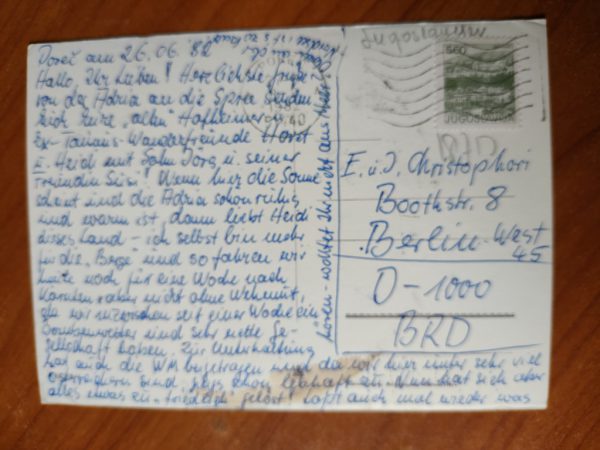 Poreč am 26.06.82
Hallo Ihr Lieben! Herzlichste Grüße
von der Adria an die Spree senden
Euch Eure "alten" Hofheimer u.
Ex-Taunus-Wanderfreunde Horst
u. Heidi mit Sohn Jörg u. seiner
Freundin Susi! Wenn hier die Sonne
scheint und die Adria schön ruhig
und warm ist, dann liebt Heidi
dieses Land - ich selbst bin mehr
für die Berge und so fahren wir
heute noch für eine Woche nach
Kärnten, aber nicht ohne Wehmut,
da wir inzwischen seit einer Woche ein
Bombenwetter und sehr nette Ge-
sellschaft haben. Zur Unterhaltung
hat auch die WM beigetragen und da wir hier unter sehr viel
Österreichern sind, ging's schon lebhaft zu. Nun hat sich aber
alles etwas zu "friedlich" gelöst! Laßt auch mal wieder was
hören - wolltet Ihr nicht ans Meer?
Jugoslawien
8.60
JUGOSLAVIJA
BRD
E. u. J. Christophori
Boothstr. 8
Berlin-West
45
D-1000
BRD